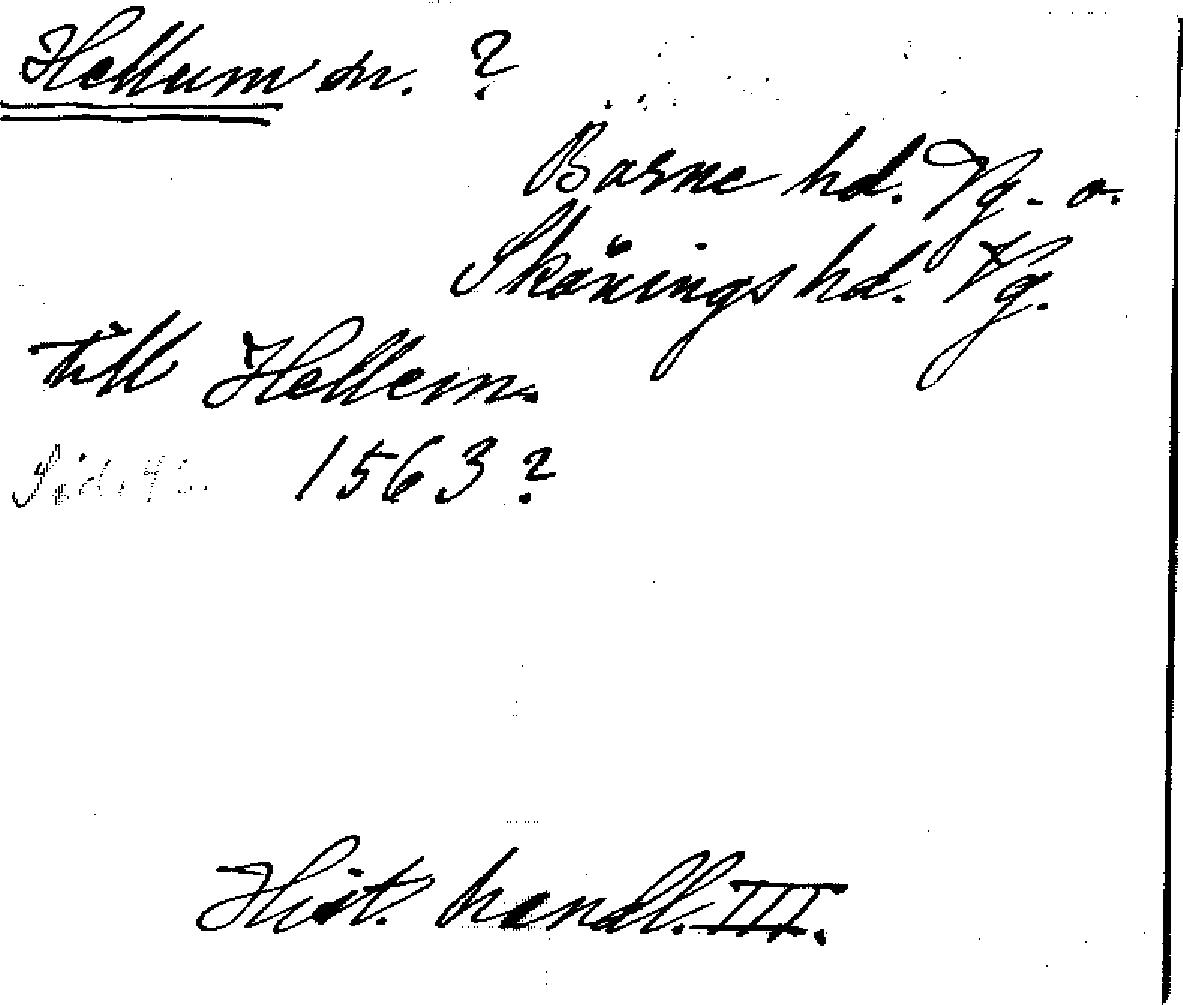 Hellum sn. ?
Barne hd. Vg. o.
Skånings hd. Vg.
till Hellem.
Sid. 1563 ?
Hist. handl. III.